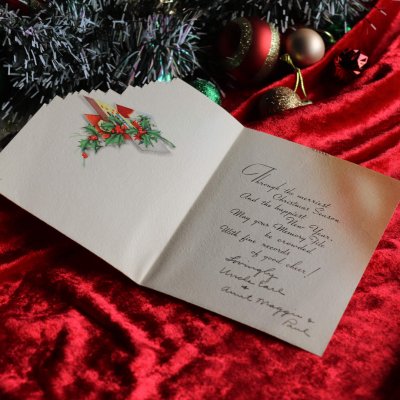 Through the merriest
Christmas Season
And the happiest New Year,
May your Memory File
be crowded
With fine records
of good cheer!
Lovingly
Uncle Earl
&
Aunt Maggie &
Paul